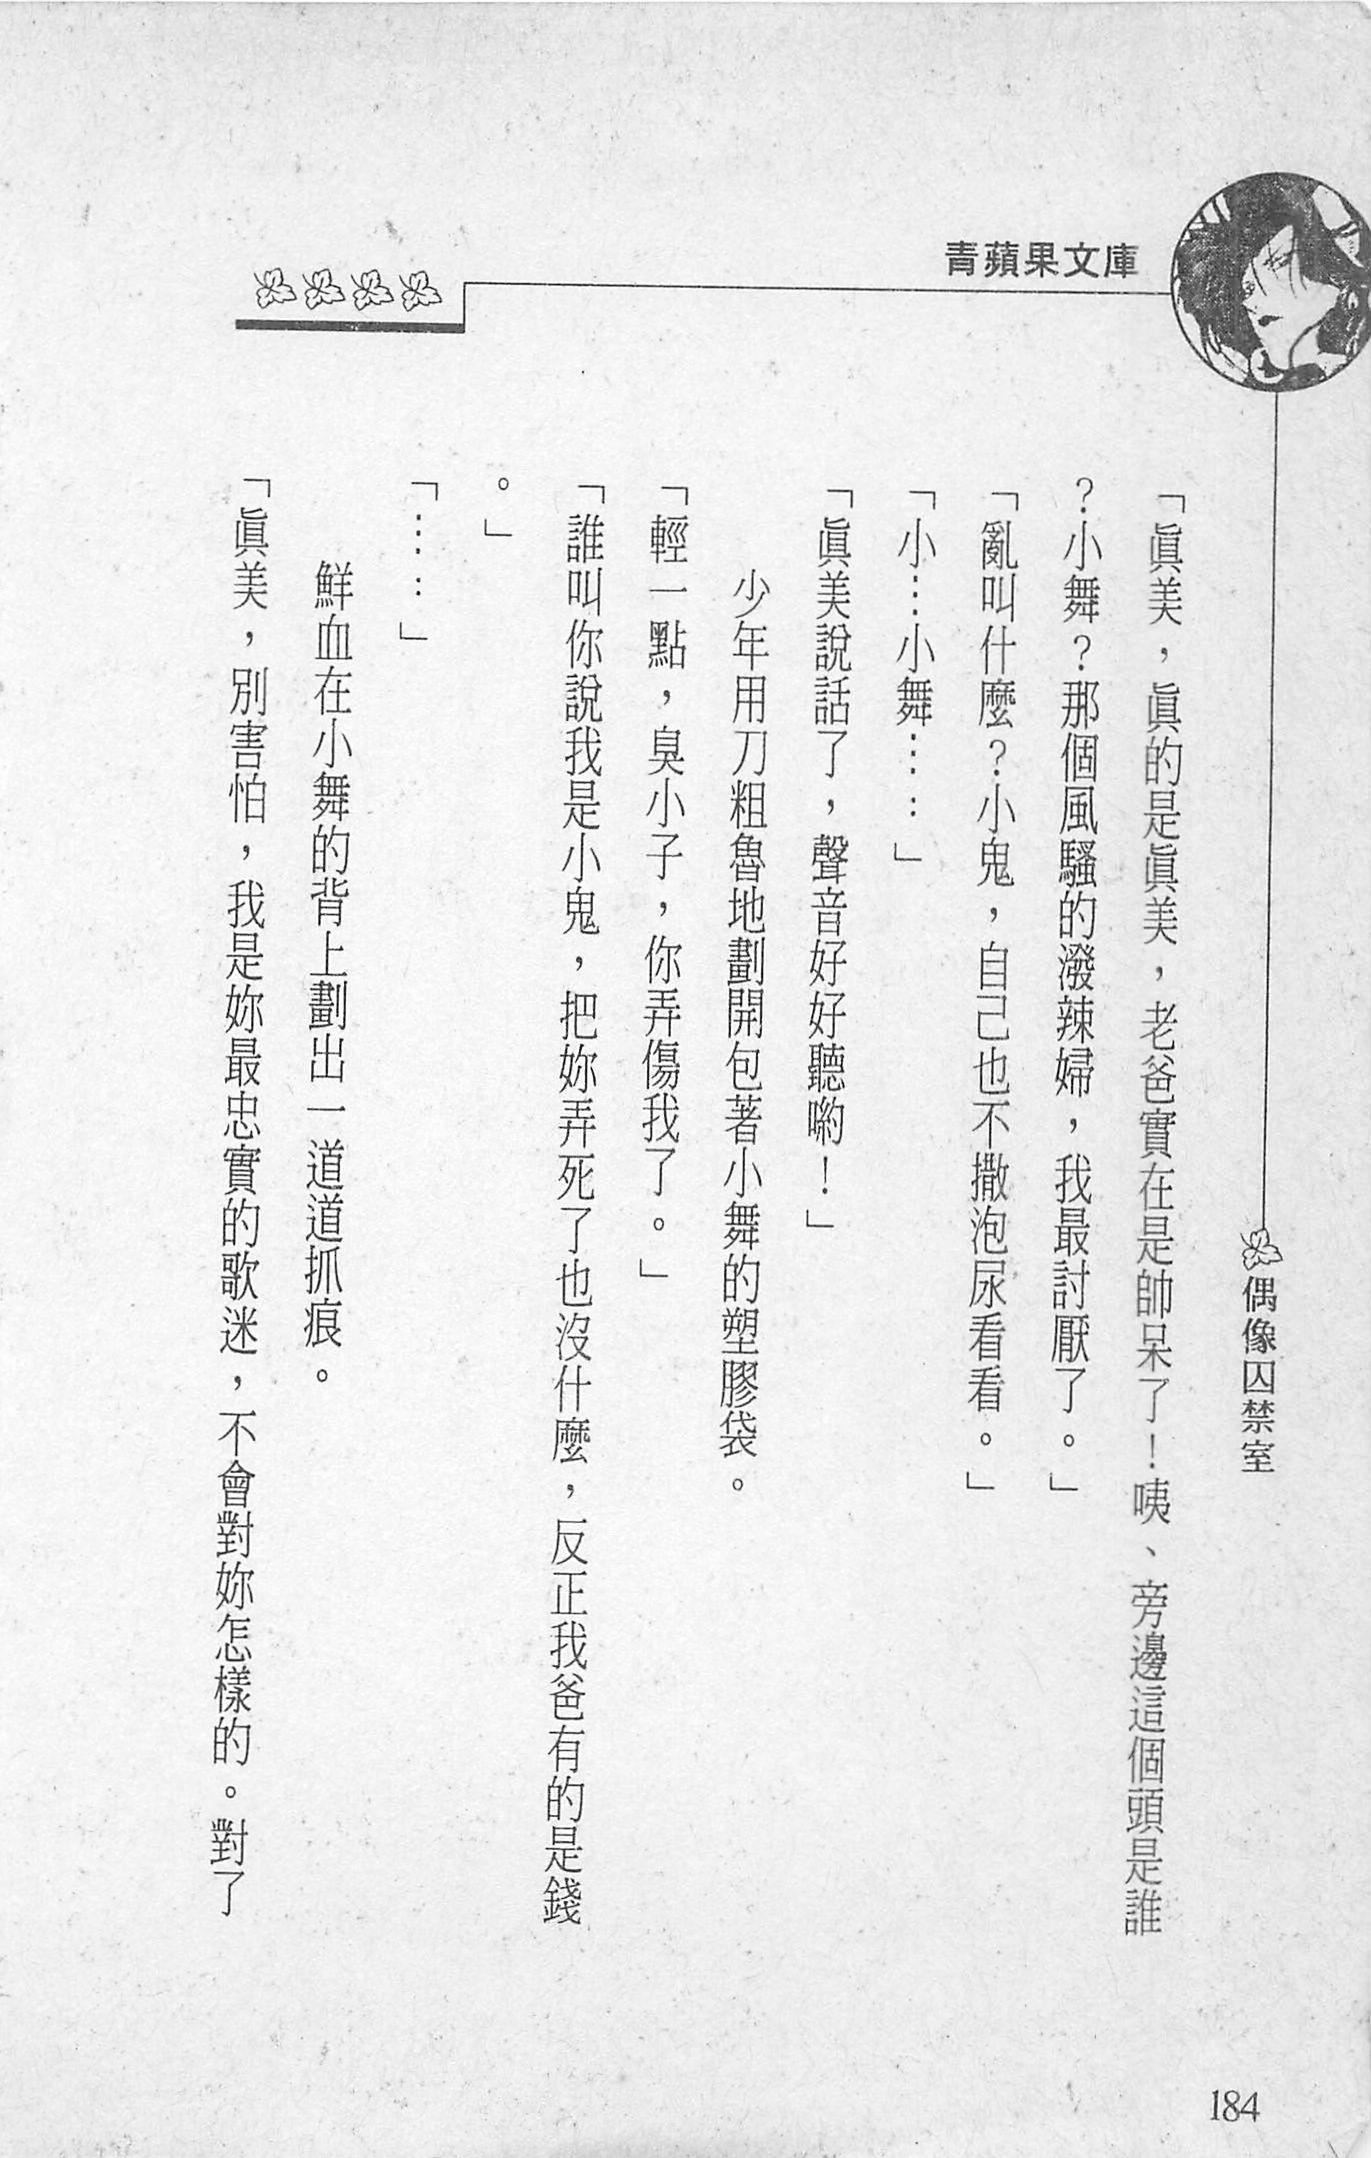 青蘋果文庫
偶像囚禁室
「眞美，眞的是眞美，老爸實在是帥呆了！咦、旁邊這個頭是誰
？小舞？那個風騷的潑辣婦，我最討厭了。」
「亂叫什麼？小鬼，自己也不撒泡尿看看。」
「小…小舞……」
「眞美說話了，聲音好好聽喲！」
少年用刀粗魯地劃開包著小舞的塑膠袋。
「輕一點，臭小子，你弄傷我了。」
「誰叫你說我是小鬼，把妳弄死了也沒什麼，反正我爸有的是錢
。」
「……」
鮮血在小舞的背上劃出一道道抓痕。
「眞美，別害怕，我是妳最忠實的歌迷，不會對妳怎樣的。對了
184